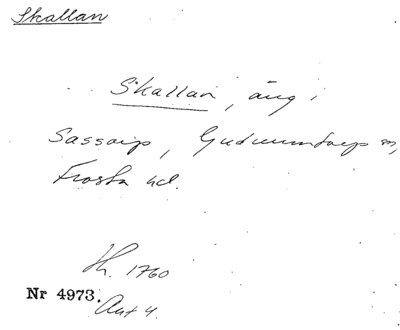 Skallan
Skallan, äng i
Sassarp, Gudmuntorps sn,
Frosta hd.
Hh. 1760
Nr 4973.
Akt 4.